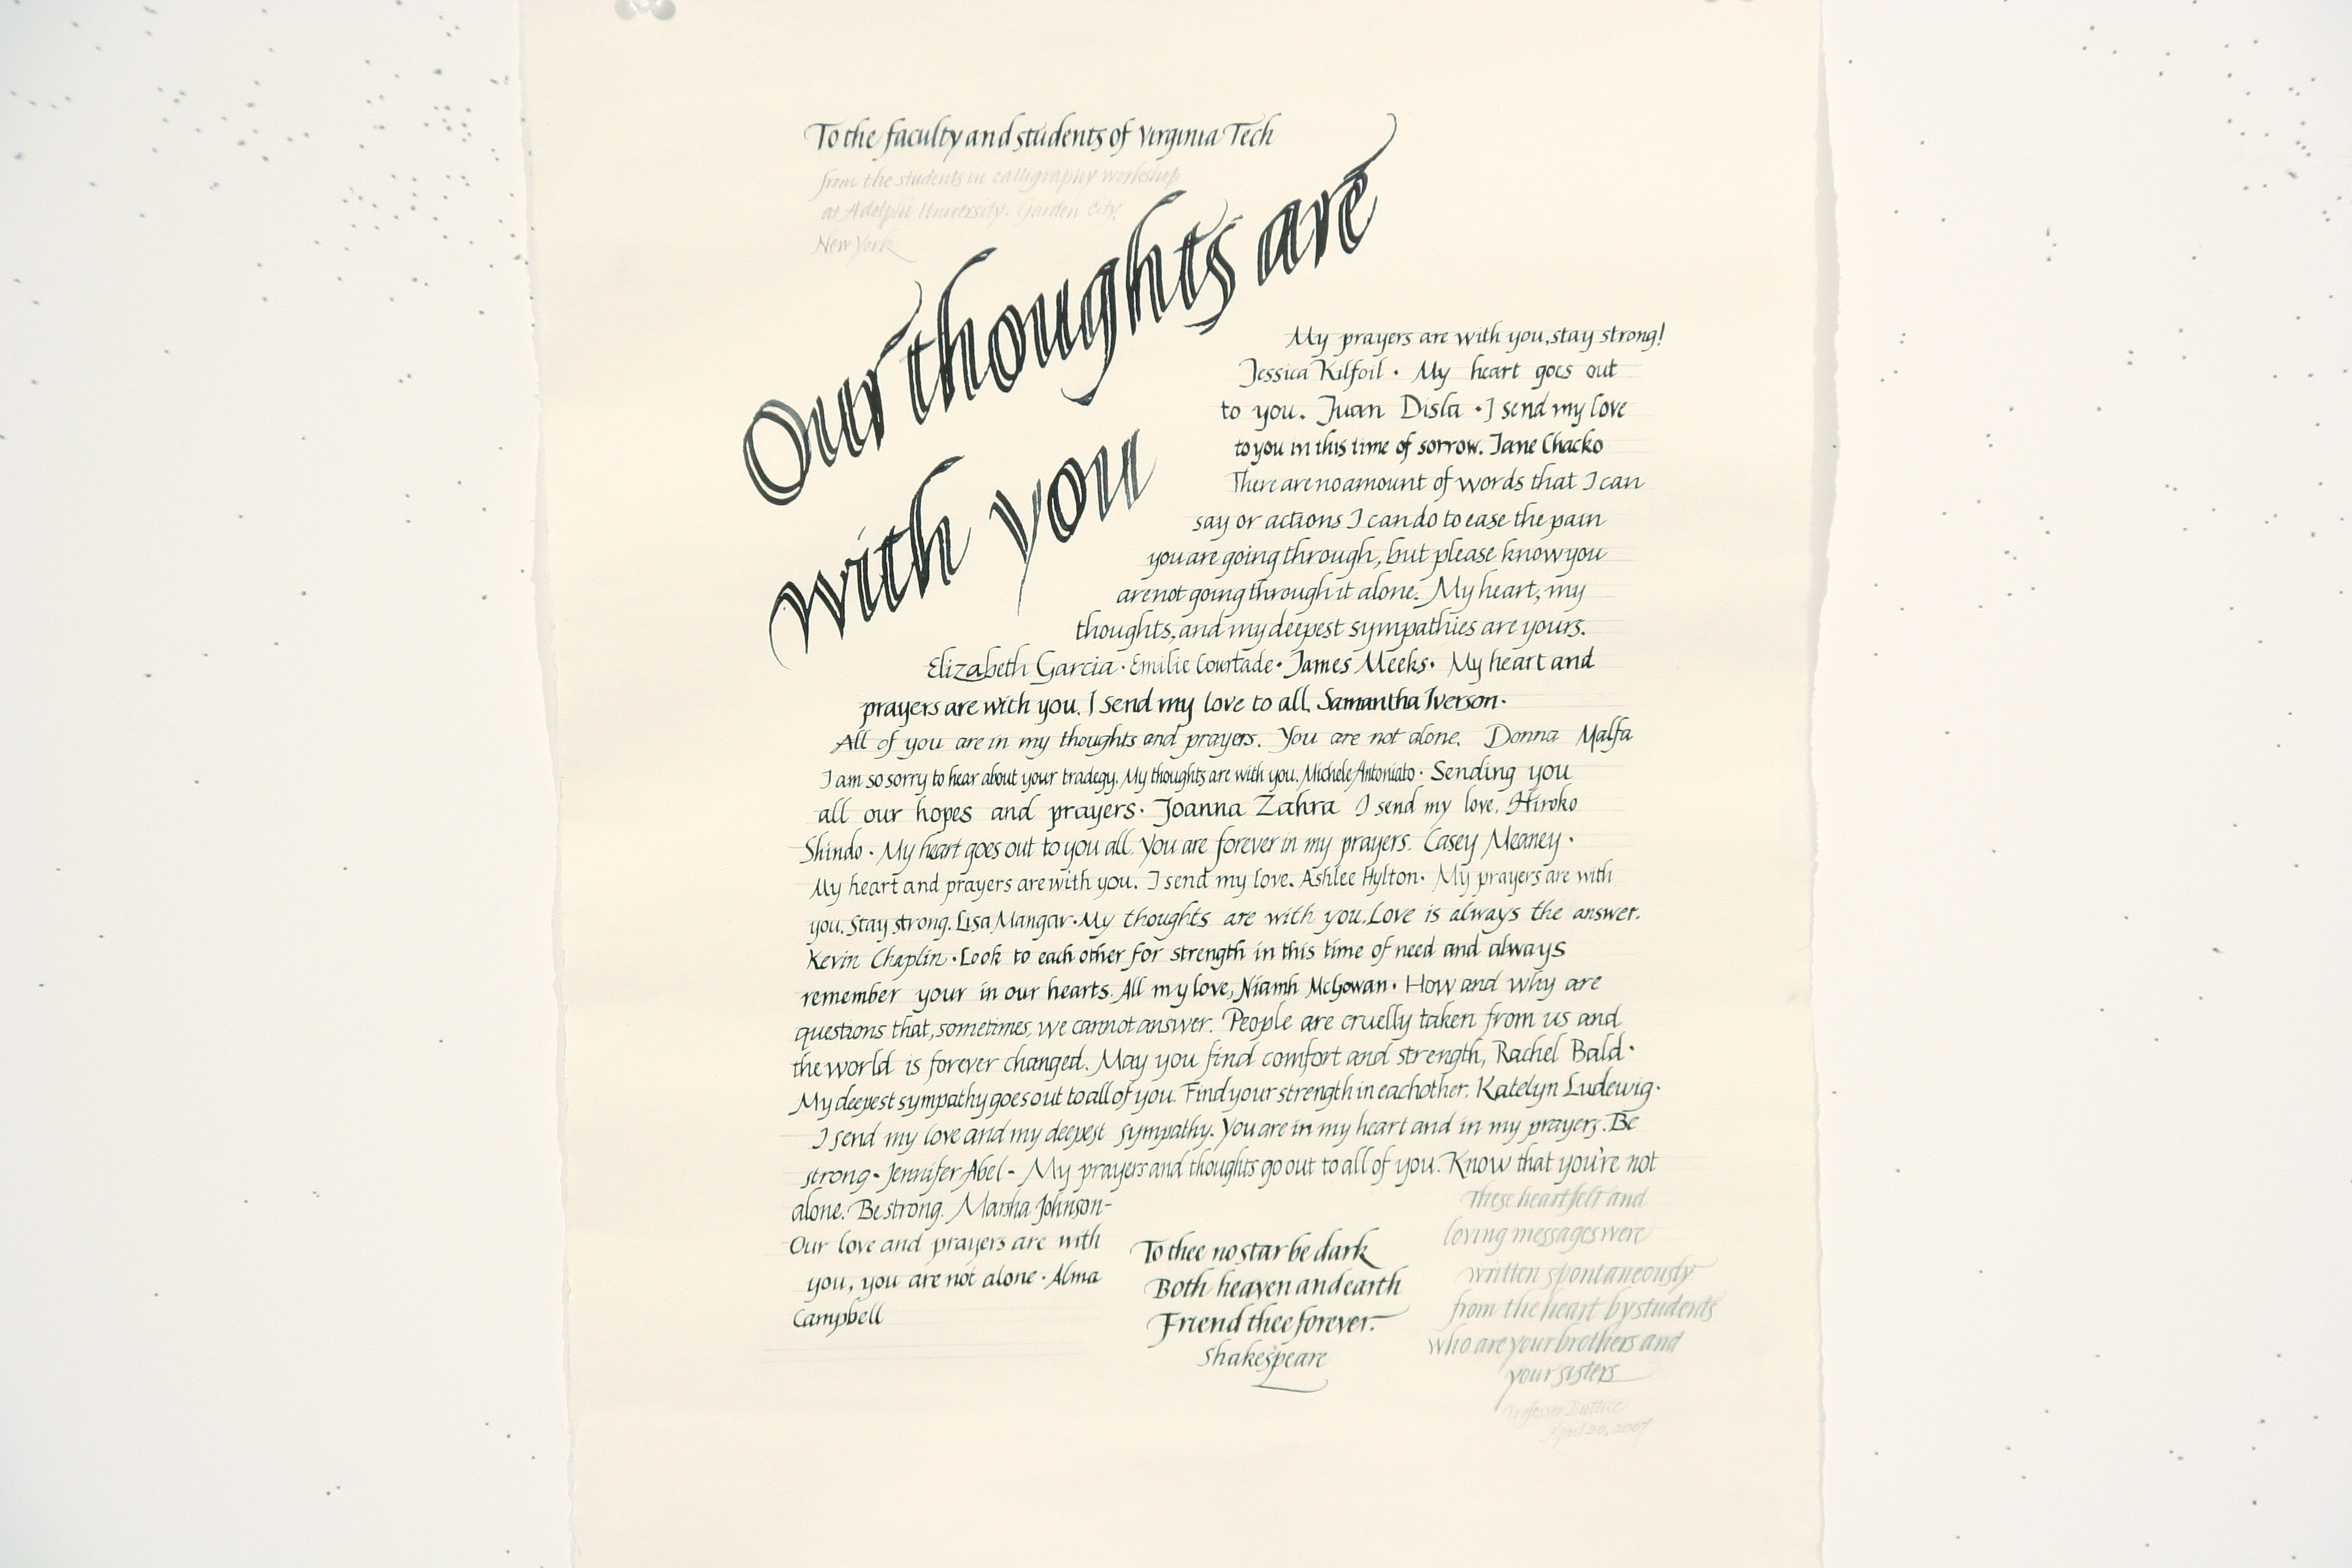 To the faculty and students of Virginia Tech
from the students in calligraphy workshop
at Adelphi University, Garden City,
New York
Our thoughts are
with you
My prayers are with you, stay strong!
Jessica Kilfoil · My heart goes out
to you. Juan Disla · I send my love
to you in this time of sorrow. Jane Chacko
There are no amount of words that I can
say or actions I can do to ease the pain
you are going through, but please know you
are not going through it alone. My heart, my
thoughts, and my deepest sympathies are yours.
Elizabeth Garcia · Emilie Courtade · James Meeks · My heart and
prayers are with you. I send my love to all. Samantha Iverson ·
All of you are in my thoughts and prayers. You are not alone. Donna Malfa
I am so sorry to hear about your tradegy. My thoughts are with you. Michele Antoniato · Sending you
all our hopes and prayers · Joanna Zahra I send my love. Hiroko
Shindo · My heart goes out to you all. You are forever in my prayers. Casey Meaney ·
My heart and prayers are with you. I send my love. Ashlee Hylton · My prayers are with
you. Stay strong. Lisa Mangar · My thoughts are with you. Love is always the answer.
Kevin Chaplin · Look to each other for strength in this time of need and always
remember your in our hearts. All my love, Niamh McGowan · How and why are
questions that, sometimes, we cannot answer. People are cruelly taken from us and
the world is forever changed. May you find comfort and strength, Rachel Bald ·
My deepest sympathy goes out to all of you. Find your strength in eachother. Katelyn Ludewig ·
I send my love and my deepest sympathy. You are in my heart and in my prayers. Be
strong · Jennifer Abel - My prayers and thoughts go out to all of you. Know that you're not
alone. Be strong. Marsha Johnson -
Our love and prayers are with
you, you are not alone · Alma
Campbell
To thee no star be dark
Both heaven and earth
Friend thee forever.
Shakespeare
These heartfelt and
loving messages were
written spontaneously
from the heart by students
who are your brothers and
your sisters
Professor
April 20, 2007